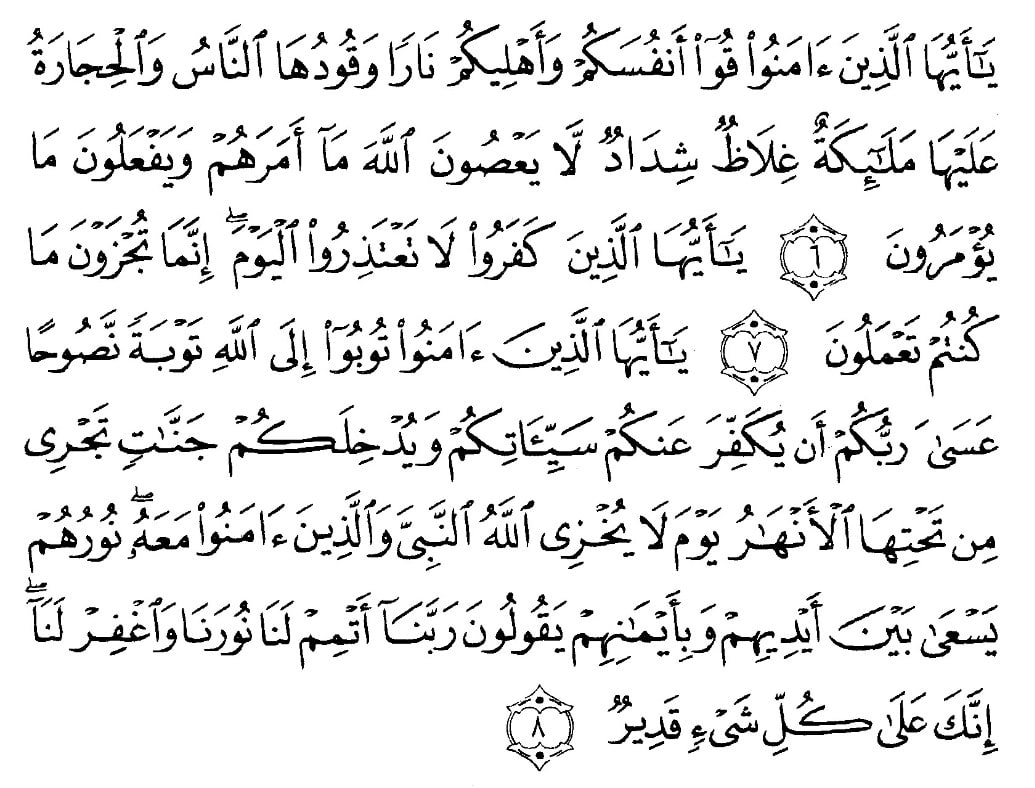 يَٰٓأَيُّهَا ٱلَّذِينَ ءَامَنُوا۟ قُوٓا۟ أَنفُسَكُمْ وَأَهْلِيكُمْ نَارًا وَقُودُهَا ٱلنَّاسُ وَٱلْحِجَارَةُ
عَلَيْهَا مَلَٰٓئِكَةٌ غِلَاظٌ شِدَادٌ لَّا يَعْصُونَ ٱللَّهَ مَآ أَمَرَهُمْ وَيَفْعَلُونَ مَا
يُؤْمَرُونَ ٦ يَٰٓأَيُّهَا ٱلَّذِينَ كَفَرُوا۟ لَا تَعْتَذِرُوا۟ ٱلْيَوْمَ ۖ إِنَّمَا تُجْزَوْنَ مَا
كُنتُمْ تَعْمَلُونَ ٧ يَٰٓأَيُّهَا ٱلَّذِينَ ءَامَنُوا۟ تُوبُوٓا۟ إِلَى ٱللَّهِ تَوْبَةً نَّصُوحًا
عَسَىٰ رَبُّكُمْ أَن يُكَفِّرَ عَنكُمْ سَيِّـَٔاتِكُمْ وَيُدْخِلَكُمْ جَنَّٰتٍ تَجْرِى
مِن تَحْتِهَا ٱلْأَنْهَٰرُ يَوْمَ لَا يُخْزِى ٱللَّهُ ٱلنَّبِىَّ وَٱلَّذِينَ ءَامَنُوا۟ مَعَهُۥ ۖ نُورُهُمْ
يَسْعَىٰ بَيْنَ أَيْدِيهِمْ وَبِأَيْمَٰنِهِمْ يَقُولُونَ رَبَّنَآ أَتْمِمْ لَنَا نُورَنَا وَٱغْفِرْ لَنَآ ۖ
إِنَّكَ عَلَىٰ كُلِّ شَىْءٍ قَدِيرٌ ٨